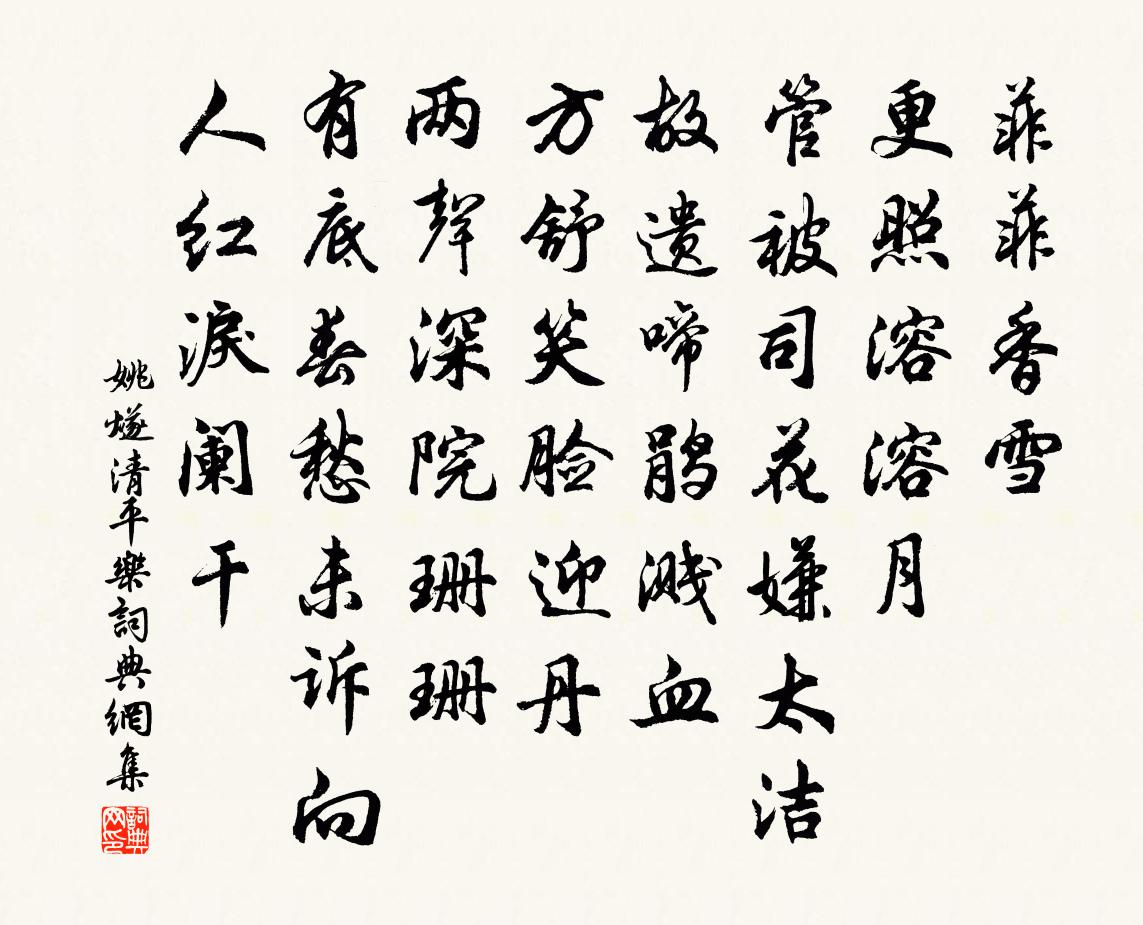 菲菲香雪
更照溶溶月
管被司花嫌太洁
故遗啼鹃溅血
方舒笑脸迎丹
两声深院珊珊
有底春愁未诉向
人红淚阑干
姚燧清平樂詞典網集
詞典网印